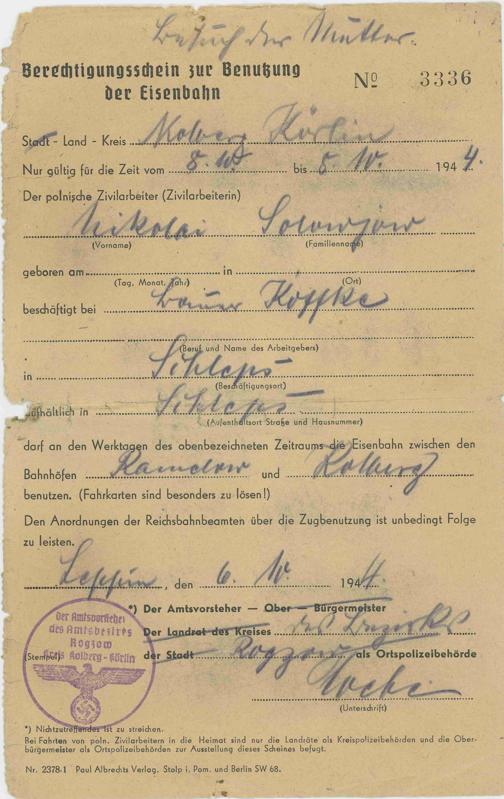 Besuch der Mutter.
Berechtigungsschein zur Benutzung
der Eisenbahn
No 3336
Stadt - Land - Kreis Kolberg Körlin
Nur gültig für die Zeit vom 8. 10. bis 8. 10. 1944.
Der polnische Zivilarbeiter (Zivilarbeiterin)
Nikolai Solowjow
(Vorname) (Familienname)
geboren am in
(Tag, Monat, Jahr) (Ort)
beschäftigt bei Bauer Köffke
(Beruf und Name des Arbeitgebers)
in Schleps
(Beschäftigungsort)
aufhältlich in Schleps
(Aufenthaltsort Straße und Hausnummer)
darf an den Werktagen des obenbezeichneten Zeitraums die Eisenbahn zwischen den
Bahnhöfen Ramelow und Kolberg
benutzen. (Fahrkarten sind besonders zu lösen!)
Den Anordnungen der Reichsbahnbeamten über die Zugbenutzung ist unbedingt Folge
zu leisten.
Leppin, den 6. 10. 1944.
*) Der Amtsvorsteher — Ober — Bürgermeister
Der Landrat des Kreises des Bezirks
der Stadt Rogzow als Ortspolizeibehörde
(Stempel)
Der Amtsvorsteher
des Amtsbezirks
Rogzow
Kreis Kolberg-Körlin
(Unterschrift)
*) Nichtzutreffendes ist zu streichen.
Bei Fahrten von poln. Zivilarbeitern in die Heimat sind nur die Landräte als Kreispolizeibehörden und die Ober-
bürgermeister als Ortspolizeibehörden zur Ausstellung dieses Scheines befugt.
Nr. 2378-1 Paul Albrechts Verlag. Stolp i. Pom. und Berlin SW 68.